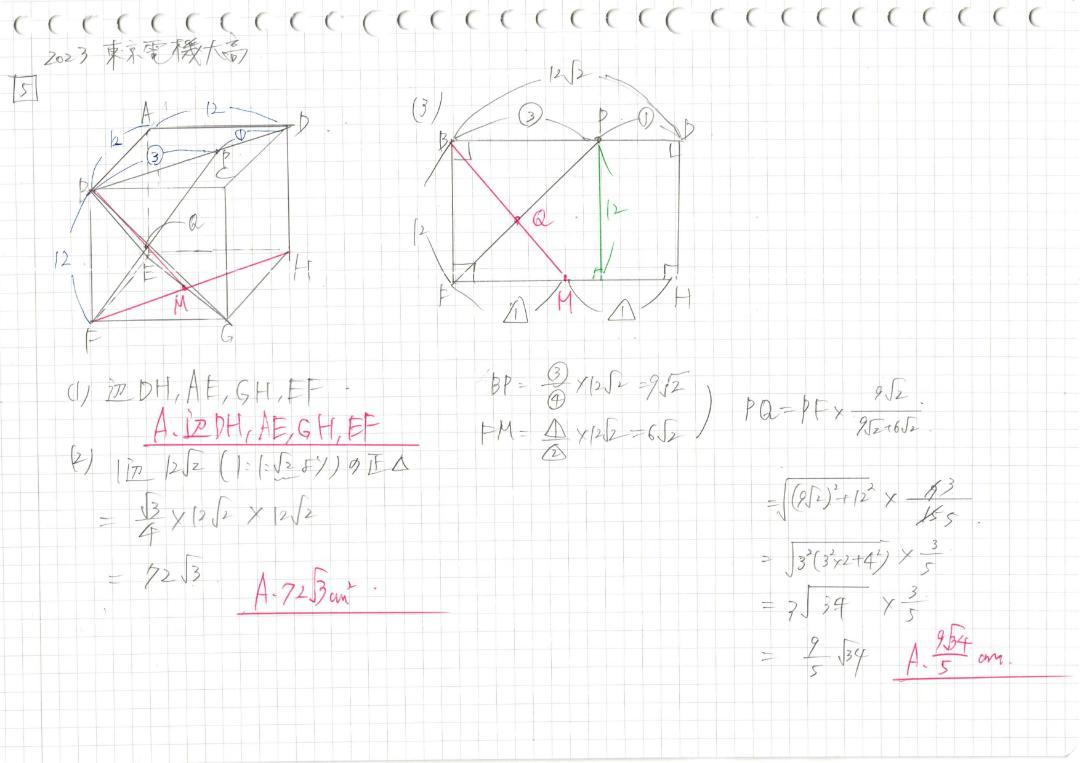 2023 東京電機大高
5
A 12 D
12 ③ ① P
B C
12 Q
E H
M
F G
(3)
12√2
B ③ P ① D
12 Q 12
F M H
△1 △1
(1) 辺DH, AE, GH, EF.
A. 辺DH, AE, GH, EF
(2) 1辺 12√2 (1:1:√2より)の正△
= √3/4 × 12√2 × 12√2
= 72√3
A. 72√3 cm².
BP = ③/④ × 12√2 = 9√2
FM = △1/△2 × 12√2 = 6√2
PQ = PF × 9√2/(9√2+6√2)
= √((9√2)²+12²) × 9 3/15 5
= √(3²(3²×2+4²)) × 3/5
= 3√34 × 3/5
= 9/5 √34
A. 9√34/5 cm.